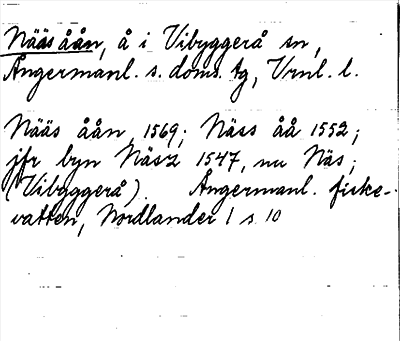 Nääs åån, å i Vibyggerå sn,
Ångermanl. s. doms. tg, Vrnl. l.
Nääs åån 1569; Näss åå 1552;
jfr byn Näsz 1547, nu Näs,
(Vibyggerå). Ångermanl. fiske-
vatten, Nordlander 1 s. 10